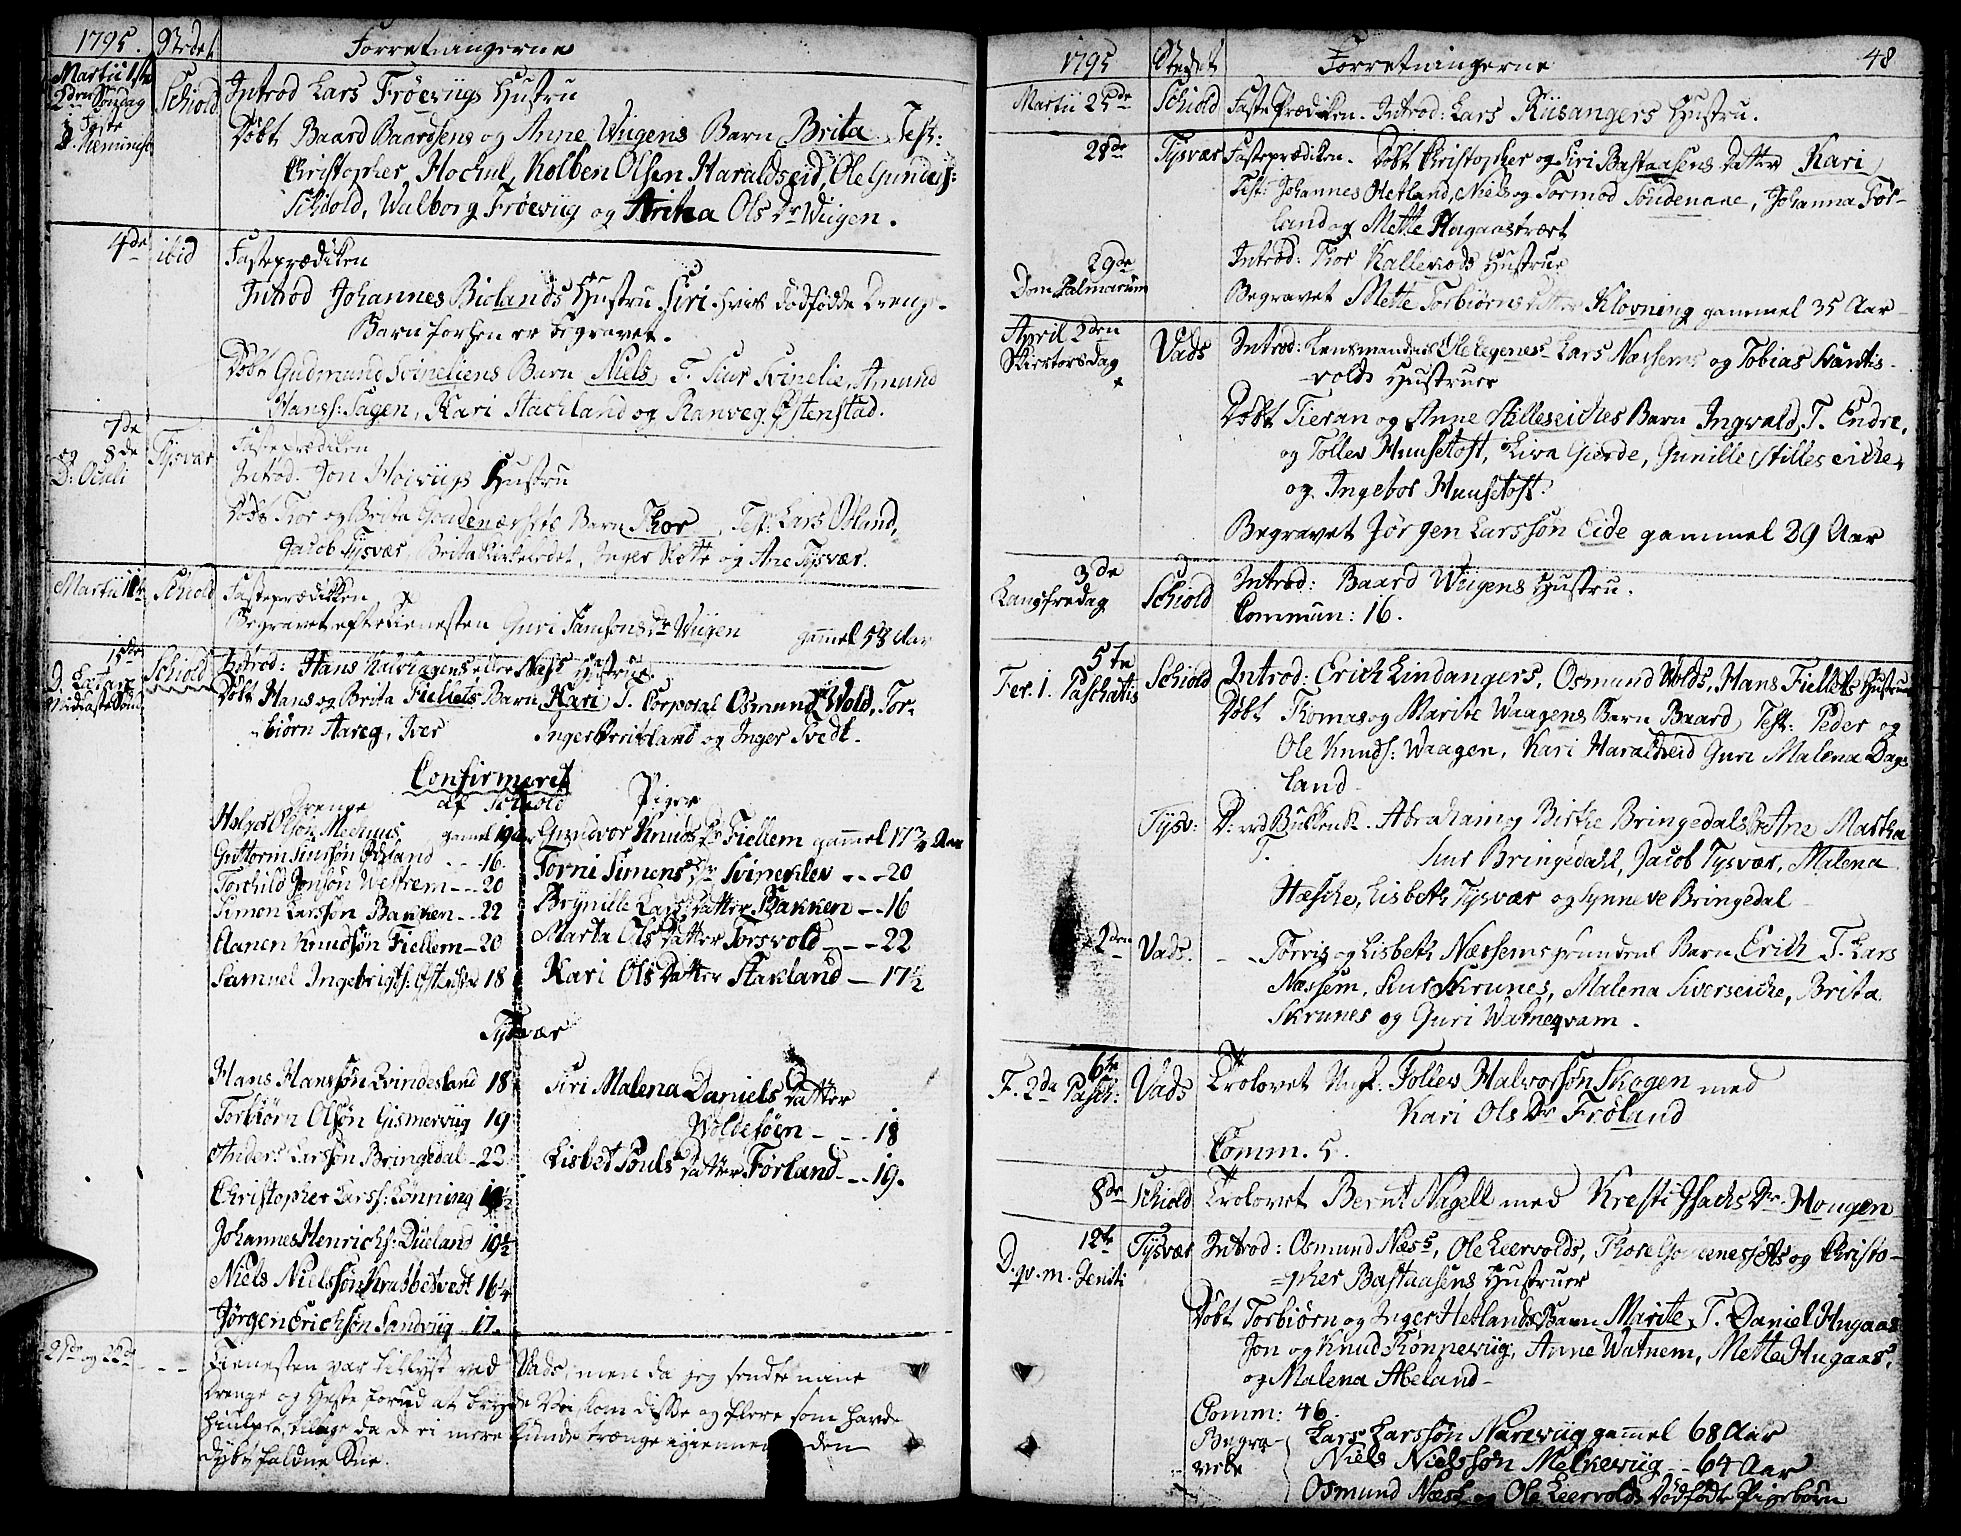 1795. Stedet Forretningerne
Martii 1ste
2den Søndag
i Faste
Reminisc
Schiold
Introd Lars Frøeviigs Hustru
Døbt Baard Baardsens og Anne Wiigens Barn Brita, Test:
Christopher Hochul, Kolben Olsen Haraldseid, Ole Gunders:
Schiold, Walborg Frøeviig og Aritha Ols Dr Wiigen.
4de ibid Fasteprædiken
Introd Johannes Biolands Hustru Siri hvis dødfødde Drenge-
Barn forhen er begravet.
Døbt Gudmund Svineliens Barn Niels, T. Siur Svinelie, Amund
Hanss: Sagen, Kari Stachland og Ranveg Østenstad.
7de
og 8de
D: Oculi
Tysvær
Fasteprædiken
Introd. Jon Høiviigs Hustru
Døbt Thor og Brita Barn Thor, Test: Lars Døland,
Jacob Tysvær, Brita, Inger Slette og Ane Tysvær.
Martii 11te Schiold Fasteprædikken
Begravet efter Tienesten Guri Samsons Dr Wiigen gamel 58 Aar
15de
D. Lætare
Midfastesøn
Schiold
Introd: Hans eller Næss Hustrue.
Døbt Hans og Brita Fiellets Barn Kari T. Corporal Osmund Wold, Tor-
biørn Aareg, Iver Inger og Inger Tvedt.
Confirmeret
af Schiold
Drenge Piger
Holger Olsøn Mechuus gamel 19 Aar
Guttorm Siursøn Øveland - - - 16.
Torchild Jonsøn Westrem - - - 20
Simon Larssøn Bakken - - 22
Aanen Knudsøn Fiellem - 20
Samuel Ingebrigts: 18
Gundvor Knuds Dr Fiellem gamel 17¾ Aar
Torni Simens Dr Svineklev - - - 20
Brynille Lars Datter Bakken - - 16
Marta Ols Datter Torsvold - - - 22
Kari Ols Datter Stakland - 17½
Tysvær
Hans Hanssøn Qvindesland 18
Torbiørn Olsøn Gismerviig 19
Anders Larssøn Bringedal - 22
Christopher Larss: Lønning
Johannes Henrichs: Dueland 19½
Niels Nielssøn Krabbetvedt 16¼
Jørgen Erichsøn Sandviig 17.
Siri Malena Daniels Datter
Woldesøen - - - 18
Lisbet Pouls Datter Førland - - 19.
21de og 22de - - Tienesten var tillyst ved Vads, men da jeg sendte nane
Drenge og Heste forud at bryde Vei, kom disse og flere som havde
hiulpet tilbage da de ei mere kunde trænge igiennem den
dybt faldne Snee.
1795 Stedet Forretningerne 48
Martii 25de Schiold Faste Prædiken. Introd: Lars Kiisangers Hustru.
28de Tysvær Fasteprædiken. Døbt Christopher og Siri Bastaasens Datter Kari
Test: Johannes Hetland, Niels og Tormod Søndenaae, Johanna Før-
land og Mette Hagaastræet
29de
Dom Palmarum
Introd: Thor Kallevods Hustrue
Begravet Mette Torbiørns Datter Klovning gammel 35 Aar
April 2den
Skiertorsdag
Vads
Introd: Lensmandens Ole Egenes- Lars Næssems og Tobias Svantis-
volds Hustruer
Døbt Tieran og Anne Stilleseiches Barn Ingvald, T. Endre,
og Tollev Huusetoft, Liva Gierde, Gunille Stilleseiche,
og Ingebor Huusetoft.
Begravet Jørgen Larssøn Eide gammel 29 Aar
3de
Langfredag
Schiold
Introd: Baard Wiigens Hustru.
Commun: 16.
5te
Fer. 1. Paschatis
Schiold
Introd: Erich Lindangers, Osmund Wolds, Hans Fiellets Hustruer
Døbt Thomas og Marite Waagens Barn Baard, Test: Peder og
Ole Knuds: Waagen, Kari Haraldseid Guri Malena Dags
land
Tysv: D: ved Abraham og Birthe Bringedals Ane Martha
T. Siur Bringedahl, Jacob Tysvær, Malena
Hæsche, Lisbeth Tysvær og Synneve Bringedal
2den Vads. - - Torris og Lisbeth Næssems Barn Erich T. Lars
Næssem, Siur Skrunes, Malena Siverseiche, Brita
Skrunes og Guri Watneqvam.
6te
F. 2da Pasch:
Vads
Trolovet Ungk. Tollev Halvorsøn Skogen med
Kari Ols Dr Frøland
Comm. 5.
8de Schiold Trolovet Bernt Nagell med Kresti Isachs Dr Hougen
12te
D. qv. m. Geniti
Tysvær
Introd: Osmund Næss, Ole Leervolds, Thore og Christo-
pher Bastaasens Hustruer
Døbt Torbiørn og Inger Hetlands Barn Marite, T. Daniel Hugaas
Jon og Knud Rønneviig, Anne Watnem, Mette Hugaas,
og Malena Aeland
Comm: 46
Begra-
vede
Lars Larssøn Nareviig gammel 68 Aar
Niels Nielssøn Melkeviig - - 64 Aar
Osmund Næss og Ole Leervolds Dødfødte Pigebørn